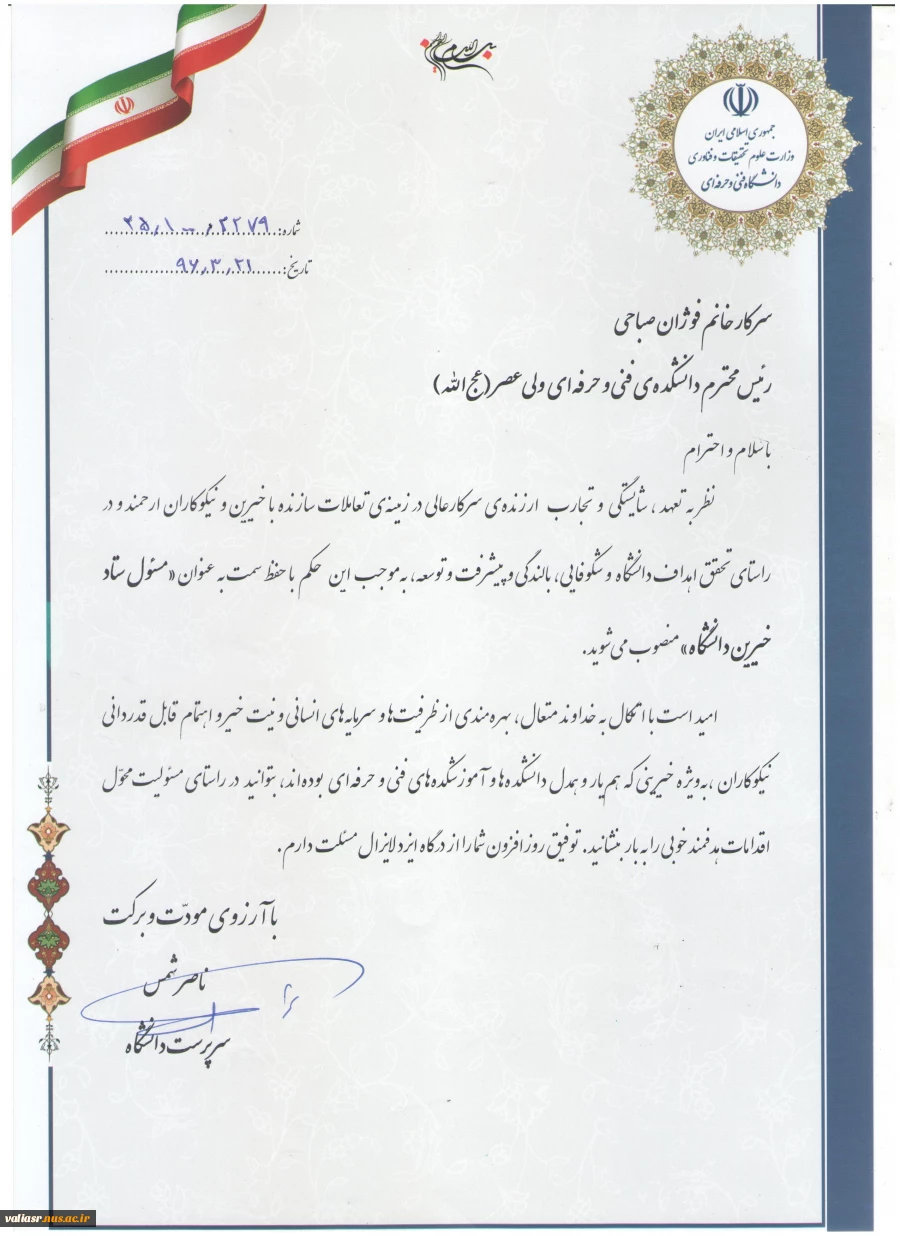 بسم الله الرحمن الرحیم
جمهوری اسلامی ایران
وزارت علوم تحقیقات و فناوری
دانشگاه فنی و حرفه ای
شماره: ۲۵٫۱۰۰٫۲۲۷۹
تاریخ: ۹۶٫۳٫۲۱
سرکار خانم فوژان صباحی
رئیس محترم دانشکده‌ی فنی و حرفه ای ولی عصر (عج الله)
باسلام و احترام
نظر به تعهد، شایستگی و تجارب ارزنده‌ی سرکارعالی در زمینه‌ی تعاملات سازنده با خیرین و نیکوکاران ارجمند و در
راستای تحقق اهداف دانشگاه و شکوفایی، بالندگی و پیشرفت و توسعه، به موجب این حکم با حفظ سمت به عنوان «مسئول ستاد
خیرین دانشگاه» منصوب می شوید.
امید است با اتکال به خداوند متعال، بهره مندی از ظرفیت ها و سرمایه های انسانی و نیت خیر و اهتمام قابل قدردانی
نیکوکاران، به ویژه خیرینی که هم یار و همدل دانشکده ها و آموزشکده های فنی و حرفه ای بوده اند، بتوانید در راستای مسئولیت محوّل
اقدامات هدفمند خوبی را به بار بنشانید. توفیق روز افزون شما را از درگاه ایزد لایزال مسئلت دارم.
با آرزوی مودّت و برکت
ناصر شمس
سرپرست دانشگاه
valiasr.nus.ac.ir